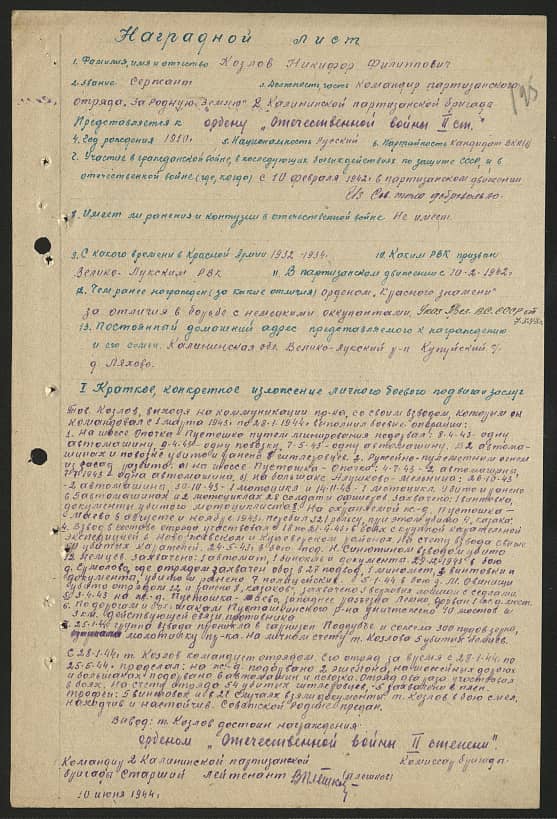 Наградной лист
195
1. Фамилия, имя и отчество Козлов Никифор Филиппович
2. Звание Сержант 3. Должность, часть Командир партизанского
отряда „За Родную Землю" 2 Калининской партизанской бригады
Представляется к ордену „Отечественной войны II ст."
4. Год рождения 1910г. 5. Национальность Русский 6. Партийность кандидат ВКП(б)
7. Участие в гражданской войне, в последующих боевых действиях по защите СССР, и в
отечественной войне (где, когда) с 10 февраля 1942г. в партизанском движении
добровольно.
8. Имеет ли ранения и контузии в отечественной войне Не имеет.
9. С какого времени в Красной Армии 1932-1934. 10. Каким РВК призван
Велико-Лукским РВК 11. В партизанском движении с 10-2-1942г.
12. Чем ранее награжден (за какие отличия) орденом „Красного знамени"
за отличия в борьбе с немецкими оккупантами. Указ През. В.С. СССР от
13. Постоянный домашний адрес представляемого к награждению
и его семьи. Калининская обл. Велико-Лукский р-н Купуйский
д. Ляхово.
I Краткое, конкретное изложение личного боевого подвига и заслуг
Тов. Козлов, выходя на коммуникации пр-ка, со своим взводом, которым он
командовал с 1 марта 1943г. по 28-1-1944г. выполнил боевые операции:
1. На шоссе Опочка-Пустошка путем минирования подорвал: 8-4-43- одну
автомашину, одну повозку, 7-5-43- одну автомашину. В 2 автома-
шинах и повозке убито и ранено 8 гитлеровцев. 2. Ружейно-пулеметным огнем
из засад разбито: а) на шоссе Пустошка-Опочка: 4-7-43- 2 автомашины,
одна автомашина, б) на большаке Глушково-Мельница: 26-10-43
- 2 автомашины, 30-10-43- 1 мотоцикл и 14-11-43- 1 мотоцикл. Убито и ранено
в 5 автомашинах и 2 мотоциклах 28 солдат и офицеров. Захвачено: 1 винтовка,
документы убитого мотоциклиста. На охраняемой ж-д. Пустошка-
-Маево в августе и ноябре 1943г. перебил 321 рельсу, при этом убито 4
4. Взвод в составе отряда участвовал с 18 по 31-4-43г. в боях с крупной карательной
экспедицией в Новоржевском и Кудеверском районах. На счету взвода свыше
50 убитых карателей. 24-5-43г. в бою под Н. Синютином взводом убито
12 немцев, захвачено: 1 автомат, 1 винтовка и документы. 29-12-1943г. в бою
д. Сумолова, где отрядом захвачен обоз в 27 подвод, 1 миномет, 2 винтовки и
документы, убито и ранено 7 полицейских. 5-1-44 в бою д. М. Овинищи
убито отрядом 12 и ранено 8 казаков, захвачено: 1 верховая лошадь с седлами.
5. 9-4-43 на ж-д. Пустошка-Маево, западнее разъезда Лени, взорван 1 ж-д. мост.
6. По дорогам и большакам Пустошкинского р-на уничтожено 10 мостов и
3 км. действующей связи противника
7. 25-1-44г. группа взвода проникла в гарнизон Поддубье и сожгла 300 пудов зерна,
молотилку пр-ка. На личном счету т. Козлова 5 убитых немцев.
С 28-1-44г. т. Козлов командует отрядом. Его отряд за время с 28-1-44г. по
25-5-44г. проделал: на ж-д подорвано 2 эшелона, на шоссейных дорогах
и большаках подорвано 6 автомашин и повозка. Отряд два раза участвовал
в боях. На счету отряда 54 убитых гитлеровцев, 5 захвачено в плен.
Трофеи: 5 винтовок и в 21 случаях взяли документы. т. Козлов в бою смел,
находчив и настойчив. Советской родине предан.
Вывод: т. Козлов достоин награждения
орденом „Отечественной войны II степени".
Командир 2 Калининской партизанской Комиссар бригады
бригады Старший лейтенант (Плешков)
10 июня 1944г.